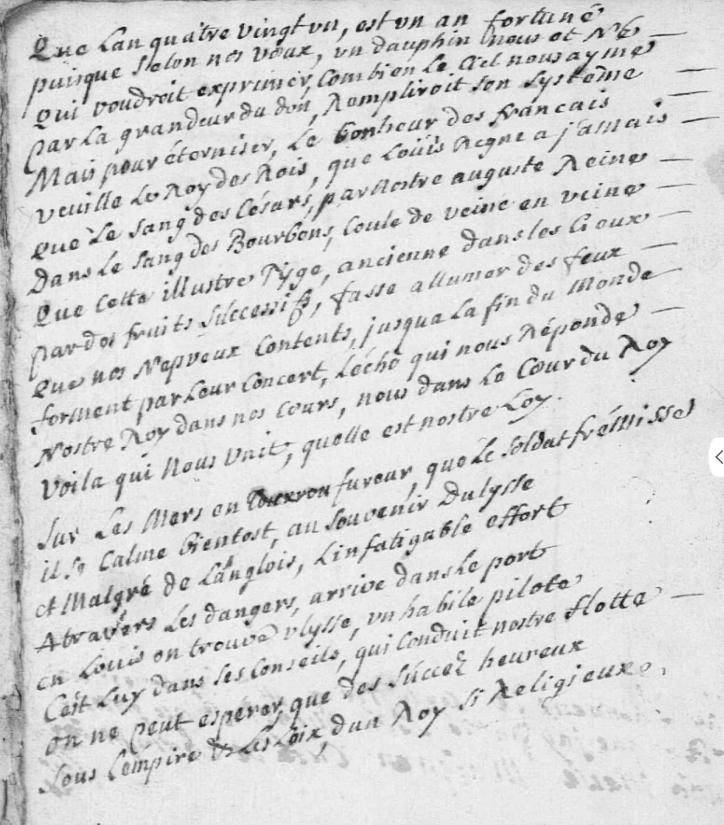 Que Lan quatre vingt un, est un an fortuné
puisque selon nos vœux, un dauphin nous est Né
Qui voudroit exprimer, Combien Le Ciel nous ayme
par La grandeur du don, Rempliroit son systême
Mais pour éterniser, Le bonheur des francais
veuille Le Roy des Rois, que Louis Regne a jamais
que Le sang des Césars, par Nostre auguste Reine
Dans Le sang des Bourbons, Coule de veine en veine
Que Cette illustre Tyge, ancienne dans les Cieux
par des fruits successifs, fasse allumer des feux
Que nos Nepveux Contents, jusqua La fin du Monde
forment par Leur Concert, Lécho qui nous Réponde
Nostre Roy dans nos Cœurs, nous dans Le Cœur du Roy
Voila qui Nous Unit, quelle est nostre Loy.
Sur Les Mers en fureur, que Le soldat frémisse
il se Calme bientost, au souvenir Dulysse
et Malgré de Lânglois, Linfatigable effort
Atravers Les dangers, arrive dans Le port
en Louis on trouve ulysse, un habile pilote
C'est Luy dans ses Conseils, qui Conduit nostre flotte
on ne peut esperer, que des succez heureux
sous Lempire de Les Loix dun Roy si Religieux.